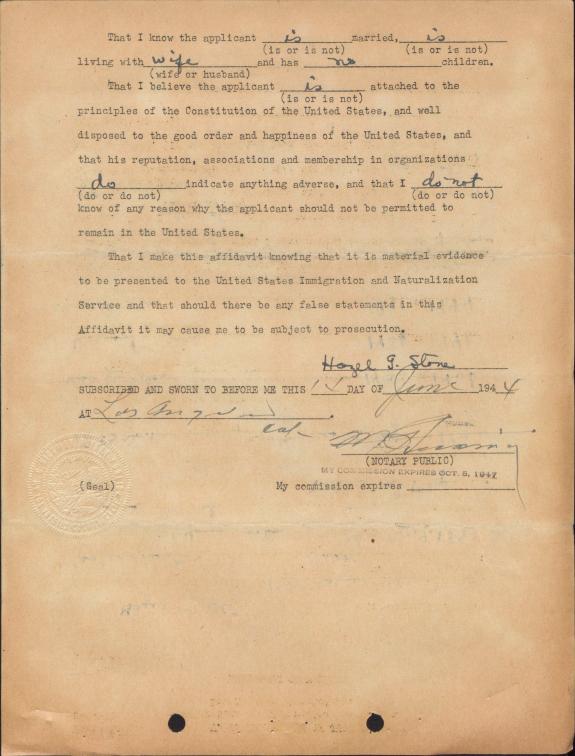 That I know the applicant is married, is
(is or is not) (is or is not)
living with wife and has no children.
(wife or husband)
That I believe the applicant is attached to the
(is or is not)
principles of the Constitution of the United States, and well
disposed to the good order and happiness of the United States, and
that his reputation, associations and membership in organizations
do indicate anything adverse, and that I do not
(do or do not) (do or do not)
know of any reason why the applicant should not be permitted to
remain in the United States.
That I make this affidavit knowing that it is material evidence
to be presented to the United States Immigration and Naturalization
Service and that should there be any false statements in this
Affidavit it may cause me to be subject to prosecution.
Hazel G. Stone
SUBSCRIBED AND SWORN TO BEFORE ME THIS DAY OF June 1944
AT Los Angeles
Cal-
(NOTARY PUBLIC)
MY COMMISSION EXPIRES OCT. 5, 1947
(Seal) My commission expires